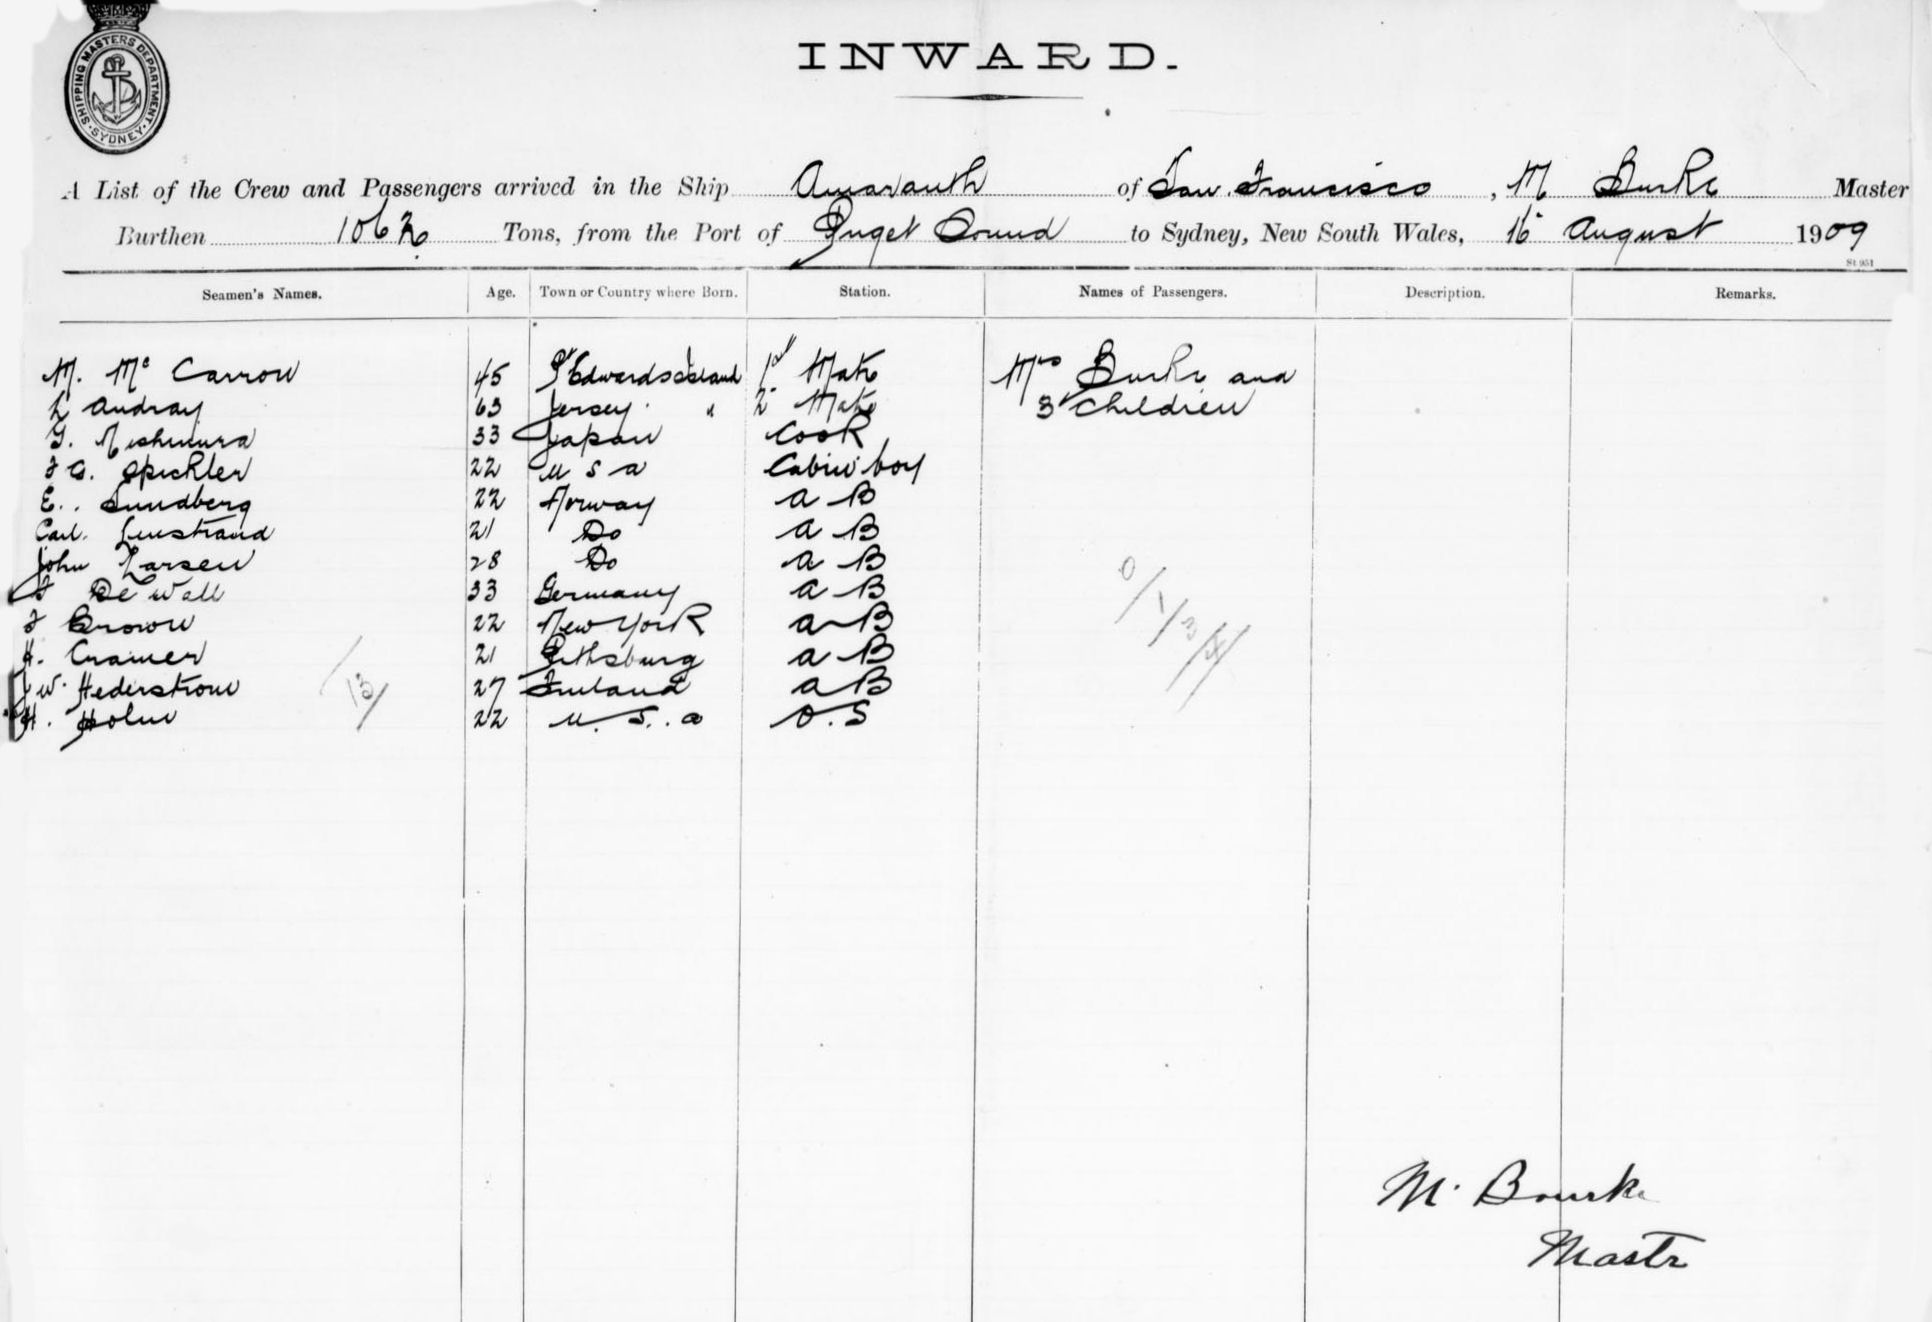 SHIPPING MASTERS DEPARTMENT
SYDNEY
INWARD.
A List of the Crew and Passengers arrived in the Ship Amaranth of San Francisco, M Burke Master
Burthen Tons, from the Port of Puget Sound to Sydney, New South Wales, 16 August 1909
St 951
Seamen's Names. Age. Town or Country where Born. Station. Names of Passengers. Description. Remarks.
M. Mc Carron 45 P Edwards Island 1st Mate Mrs Burke and
L Audray 63 Jersey " 2 Mate 3 Children
G. Nishimura 33 Japan Cook
F G. Spickler 22 U S A Cabin boy
E. Sundberg 22 Norway A B
Carl. Linstrand 21 Do A B
John Larsen 28 Do A B
F De Wall 33 Germany A B
F Brown 22 New York A B
H. Cramer 21 Pittsburg A B
J W. Hederstrom 27 Finland A B
H. Holm 22 U. S. A O. S
13
0/1/3/4
M. Bourke
Mastr